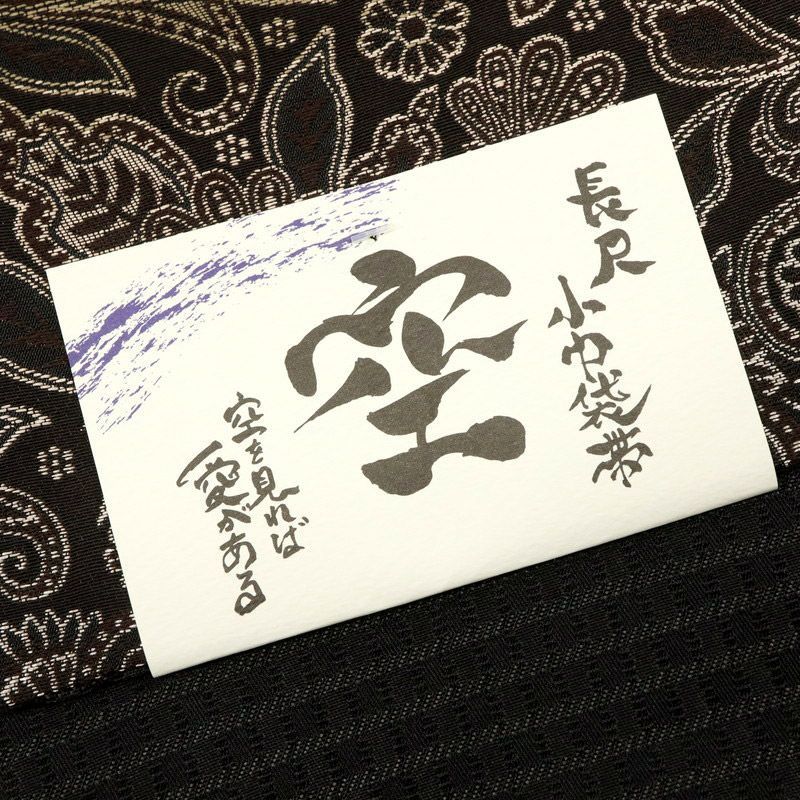 長尺
小巾袋帯
空
空を見れば
愛がある